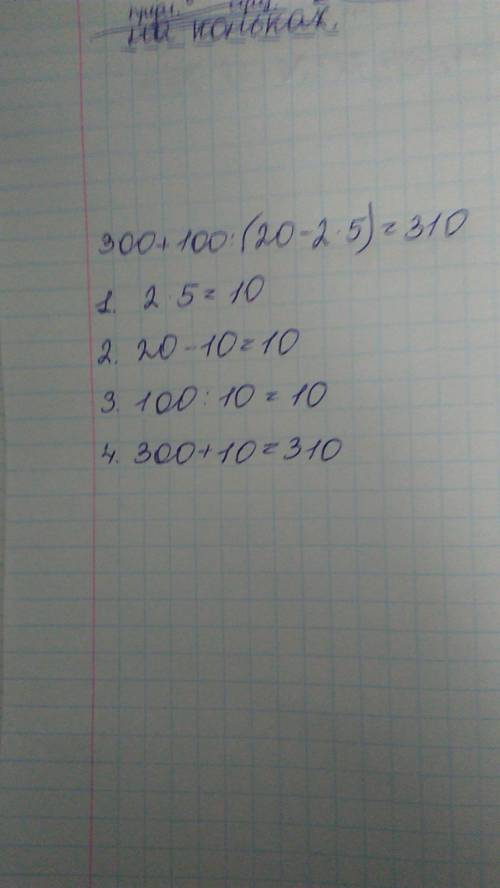 на коньках.
300+100:(20-2·5)=310
1. 2·5=10
2. 20-10=10
3. 100:10=10
4. 300+10=310